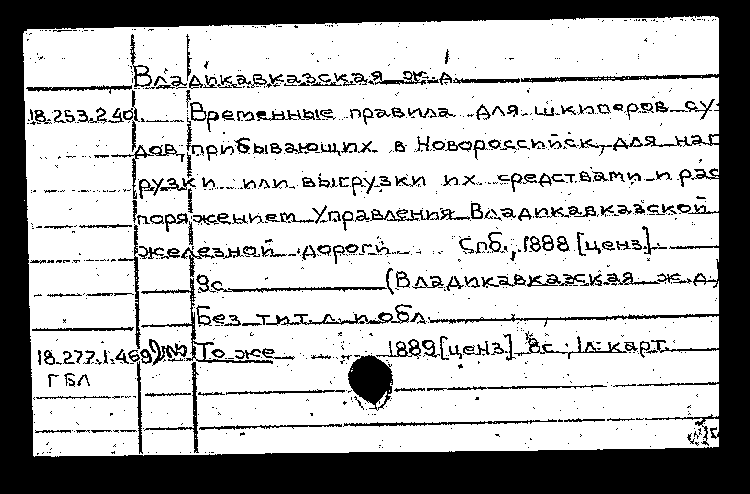 Владикавказская ж.д.
18.253.2.40. Временные правила для шкиперов су-
дов, прибывающих в Новороссийск, для наг-
рузки или выгрузки их средствами и рас-
поряжением Управления Владикавказской
железной дороги Спб., 1888 [ценз].
9с. (Владикавказская ж.д.)
Без тит. л. и обл.
18.277.1.469 То же 1889 [ценз] 8с.; 1л. карт.
ГБЛ